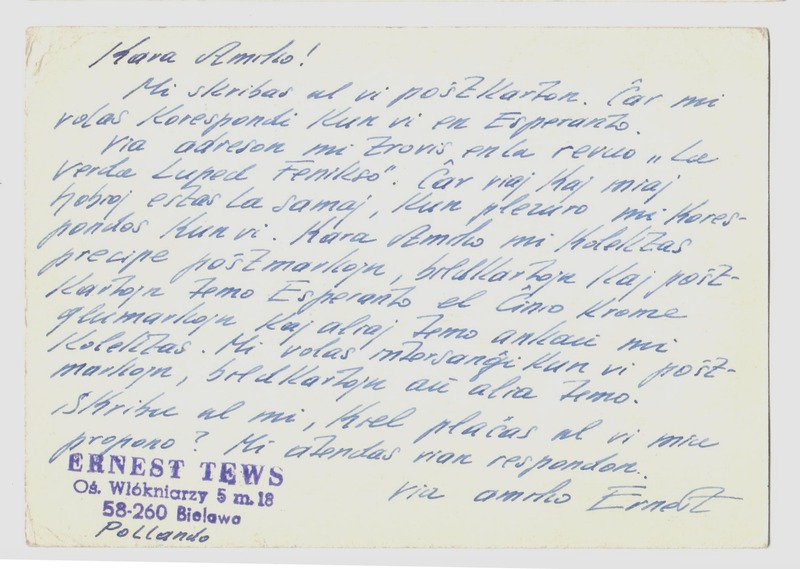 Kara Amiko!
Mi skribas al vi poŝtkarton. Ĉar mi
volas korespondi kun vi en Esperanto.
Via adreson mi trovis en la revuo „La
verda Lupeo Fenikso". Ĉar viaj kaj miaj
hobioj estas la samaj, kun plezuro mi kores-
pondos kun vi. Kara Amiko mi kolektas
precipe poŝtmarkojn, bildkartojn kaj poŝt-
kartojn temo Esperanto el Ĉinio krome
glumarkojn kaj aliaj temo ankaŭ mi
kolektas. Mi volas interŝanĝi kun vi poŝt-
markojn, bildkartojn aŭ alia temo.
Skribu al mi, kiel plaĉas al vi miu
propono? Mi atendas vian respondon.
via amiko Ernest
ERNEST TEWS
Oś. Włókniarzy 5 m. 18
58-260 Bielawa
Pollando